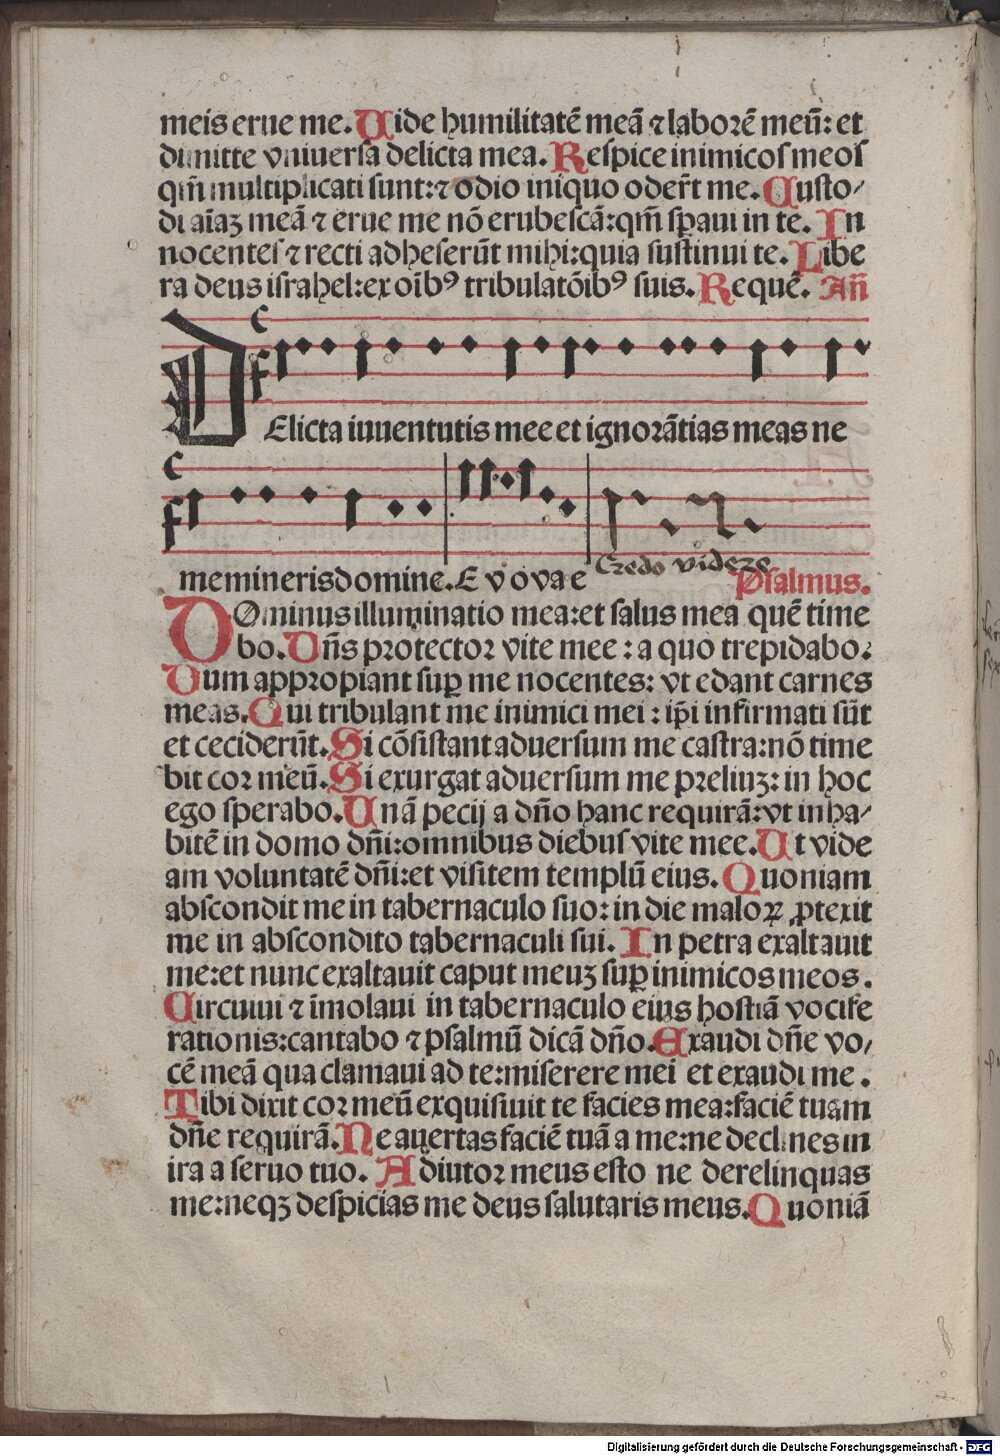 meis erue me. Uide humilitatē meā ⁊ laborē meū: et
dimitte vniuersa delicta mea. Respice inimicos meos
qm̄ multiplicati sunt: ⁊ odio iniquo oder̄t me. Custo⸗
di aīaꝫ meā ⁊ erue me nō erubescā: qm̄ sp̄aui in te. In
nocentes ⁊ recti adheserūt mihi: quia sustinui te. Libe
ra deus israhel: ex oīb⁹ tribulatōib⁹ suis. Requē. Añ
DElicta iuuentutis mee et ignorātias meas ne
memineris domine. E v o v a e Credo videre Psalmus.
DOminus illuminatio mea: et salus mea quē time
bo. Dn̄s protector vite mee: a quo trepidabo.
Dum appropiant suꝑ me nocentes: vt edant carnes
meas. Qui tribulant me inimici mei: ip̄i infirmati sūt
et ceciderūt. Si cōsistant aduersum me castra: nō time
bit cor meū. Si exurgat aduersum me preliuꝫ: in hoc
ego sperabo. Unā pecij a dn̄o hanc requirā: vt inha⸗
bitē in domo dn̄i: omnibus diebus vite mee. Ut vide
am voluntatē dn̄i: et visitem templū eius. Quoniam
abscondit me in tabernaculo suo: in die maloꝝ ꝓtexit
me in abscondito tabernaculi sui. In petra exaltauit
me: et nunc exaltauit caput meuꝫ suꝑ inimicos meos.
Circuiui ⁊ īmolaui in tabernaculo eius hostiā vocife
rationis: cantabo ⁊ psalmū dicā dn̄o. Exaudi dn̄e vo⸗
cē meā qua clamaui ad te: miserere mei et exaudi me.
Tibi dixit cor meū exquisiuit te facies mea: faciē tuam
dn̄e requirā. Ne auertas faciē tuā a me: ne declines in
ira a seruo tuo. Adiutor meus esto ne derelinquas
me: neqꝫ despicias me deus salutaris meus. Quoniā
Digitalisierung gefördert durch die Deutsche Forschungsgemeinschaft - DFG